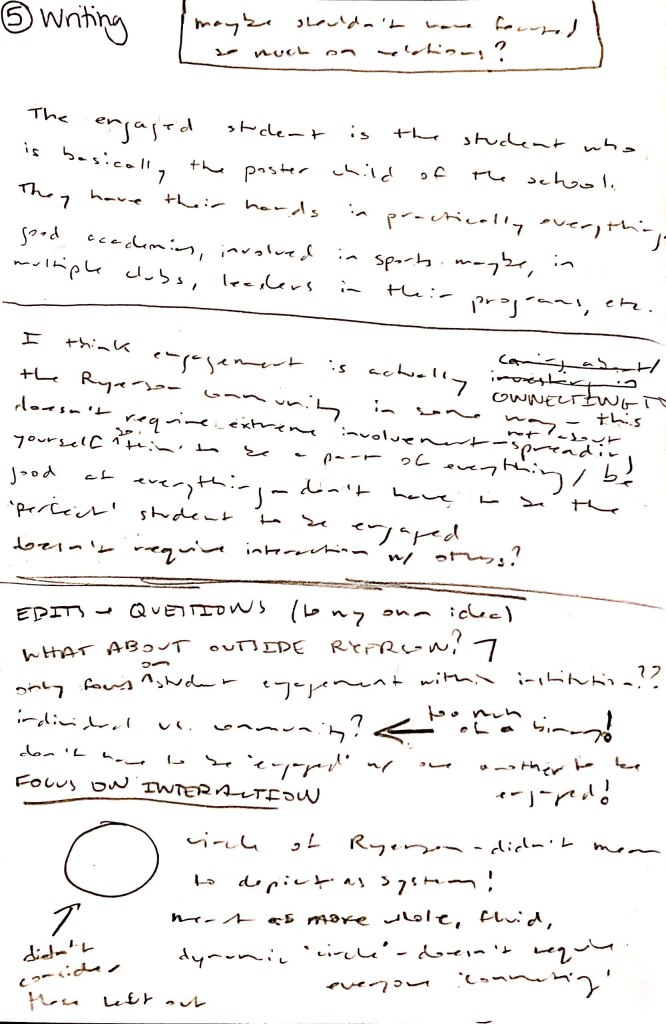 ⑤ Writing
maybe shouldn't have focused
so much on relations?
The engaged student is the student who
is basically the poster child of the school.
They have their hands in practically everything,
good academics, involved in sports maybe, in
multiple clubs, leaders in their programs, etc.
I think engagement is actually caring about/
investing in
CONNECTING TO
the Ryerson community in some way – this
doesn't require extreme involvement – not about spreading
yourself so thin to be a part of everything / be
good at everything – don't have to be the
'perfect' student to be engaged
doesn't require interaction w/ others?
EDITS → QUESTIONS (to my own idea)
WHAT ABOUT OUTSIDE RYERSON?
only focus on student engagement within institution??
individual vs. community? ← too much of a binary!
don't have to be 'engaged' w/ one another to be
engaged!
FOCUS ON INTERACTION
circle of Ryerson – didn't mean
to depict as system!
meant as more whole, fluid,
dynamic 'circle' – doesn't require
everyone 'connecting'
didn't
consider
those left out